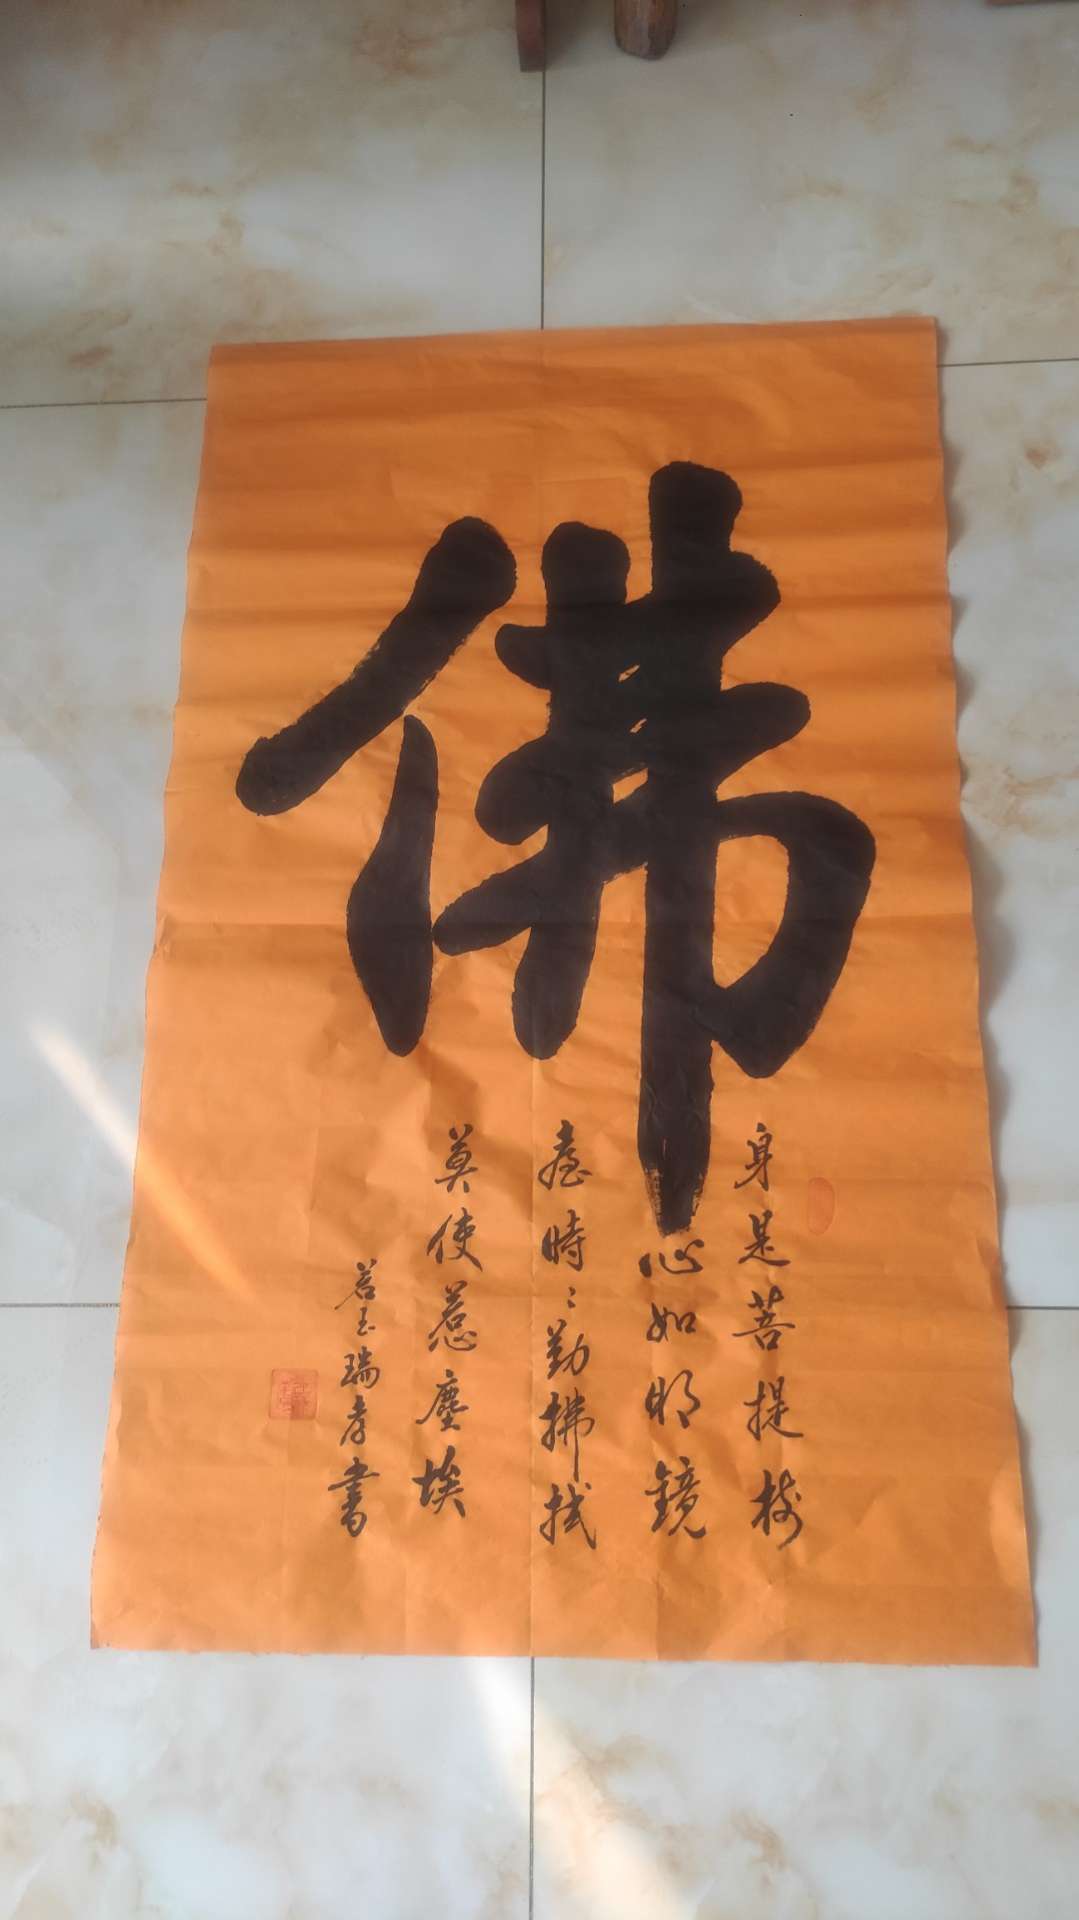 佛
身是菩提树
心如明鏡
臺時〻勤拂拭
莫使惹塵埃
若玉瑞孝書